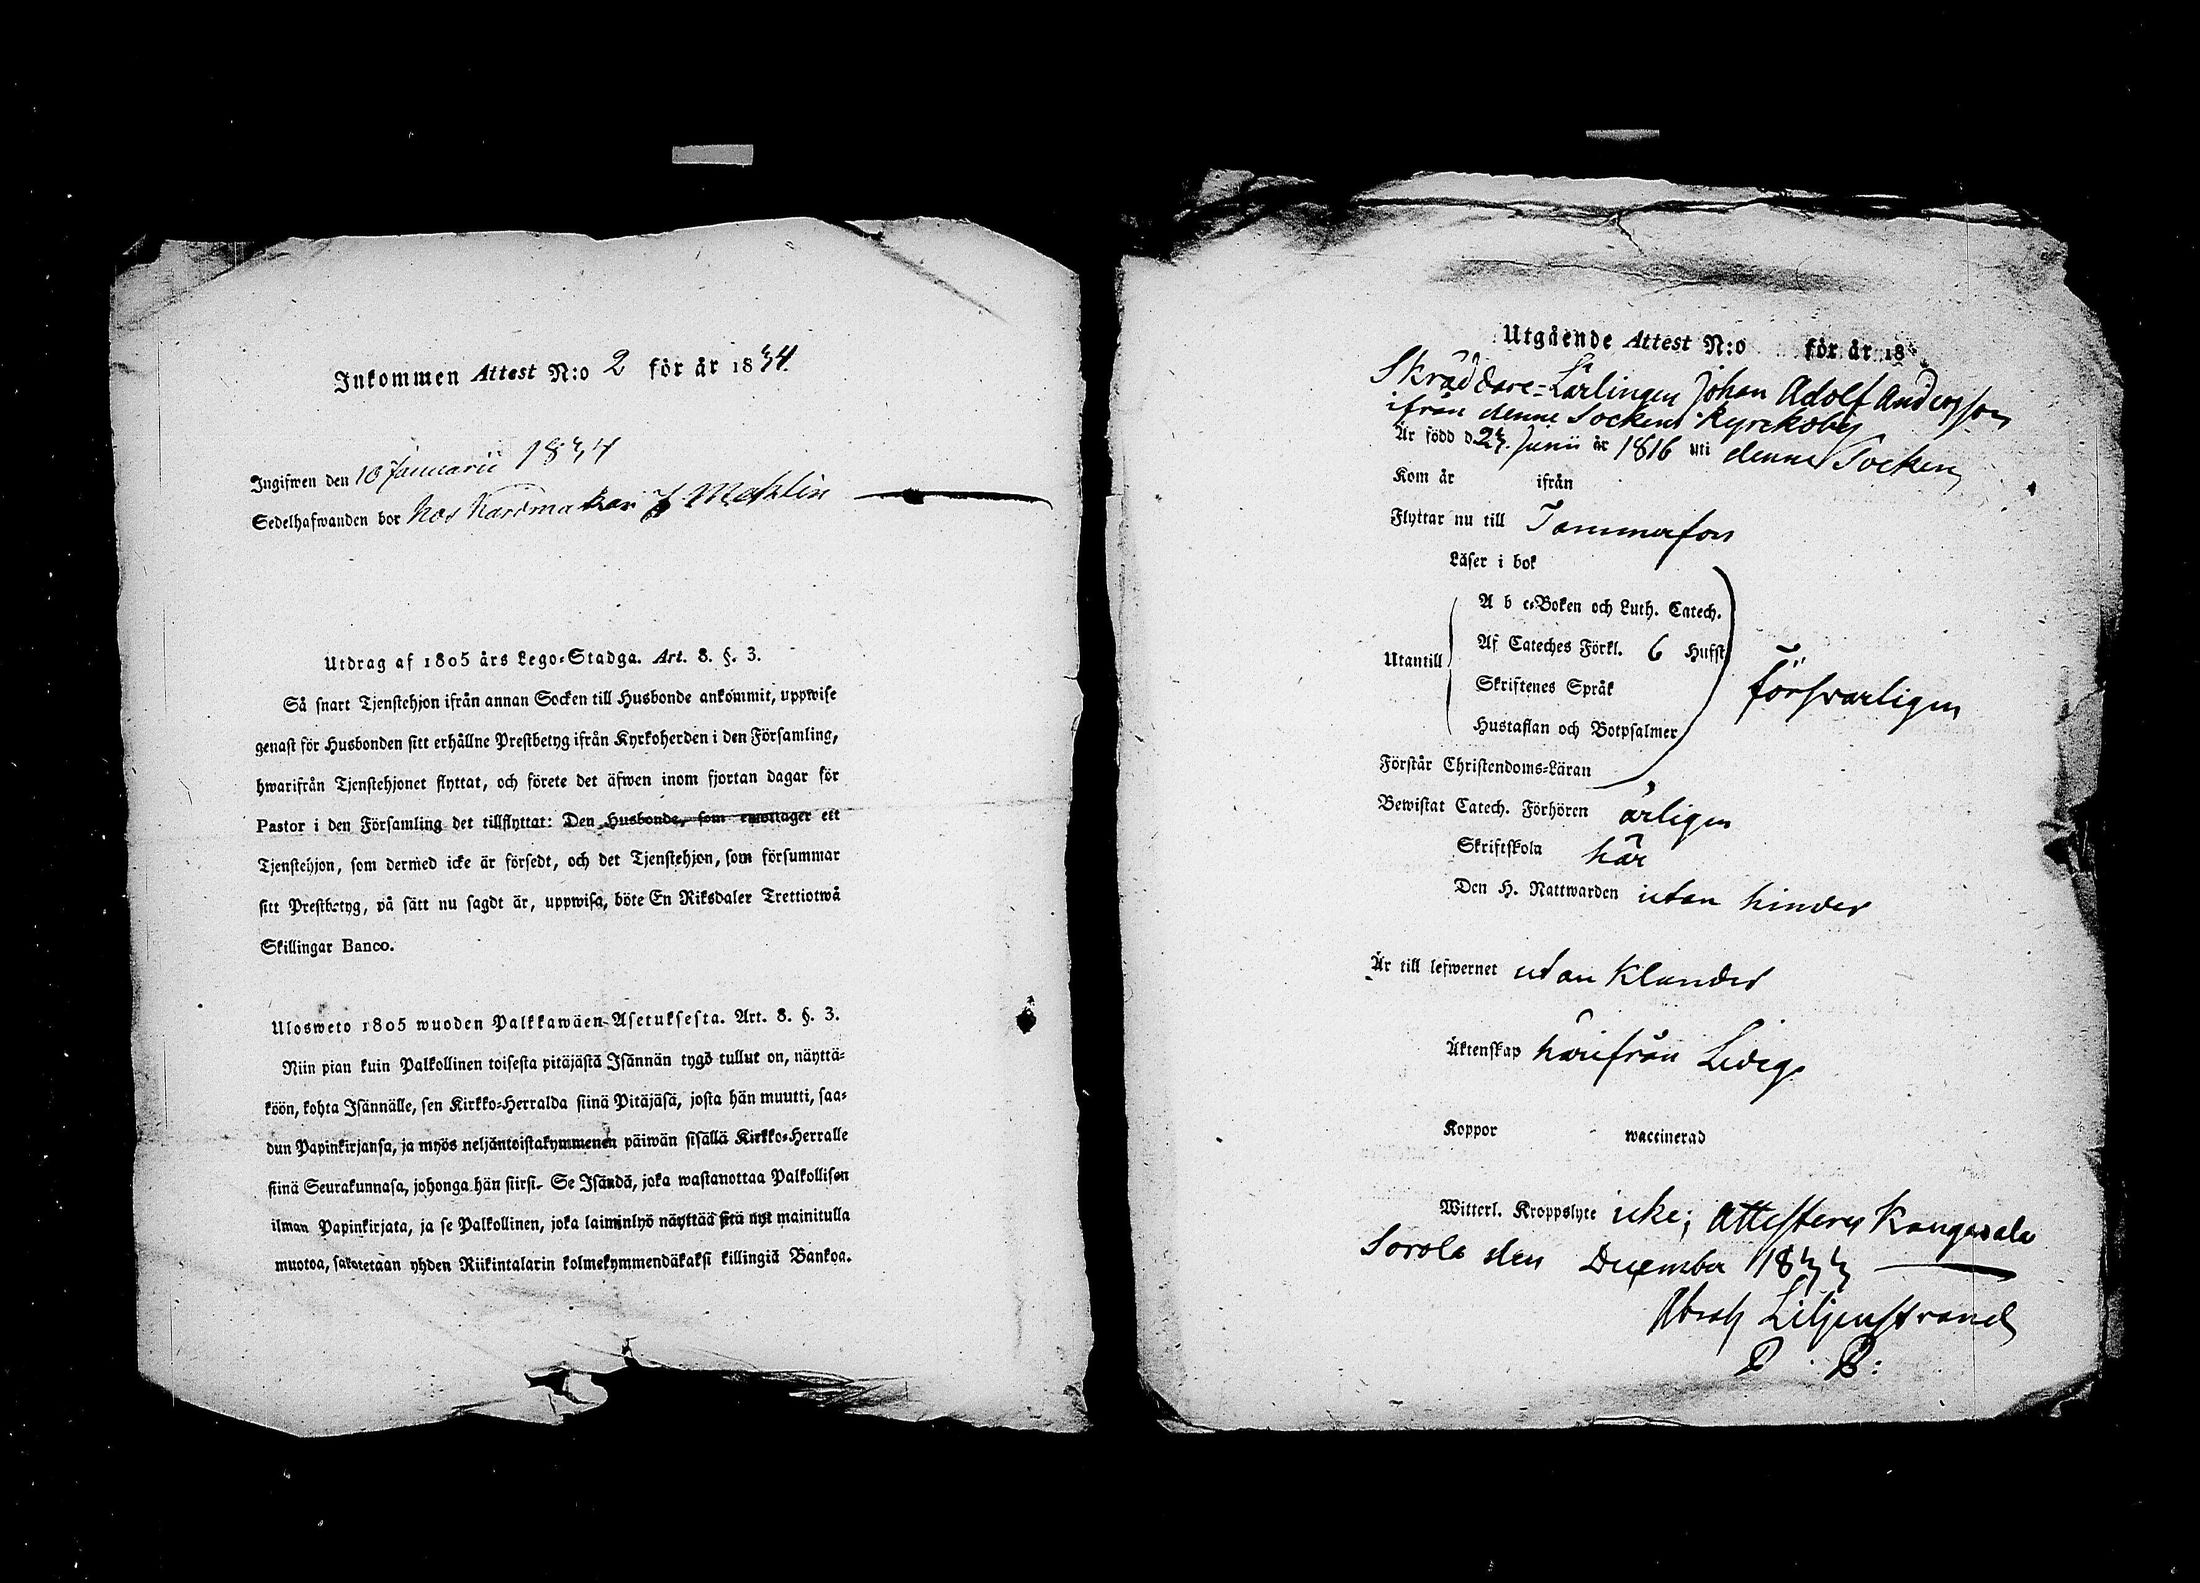 Inkommen Attest N:o 2 för år 1834.
Ingifwen den 10 Januarii 1834
Sedelhafwanden bor hos Kardmakar J. Mechlin
Utdrag af 1805 års Lego-Stadga. Art. 8. §. 3.
Så snart Tjenstehjon ifrån annan Socken till Husbonde ankommit, uppwise
genast för Husbonden sitt erhållne Prestbetyg ifrån Kyrkoherden i den Församling,
hwarifrån Tjenstehjonet flyttat, och förete det äfwen inom fjortan dagar för
Pastor i den Församling det tillflyttat: Den Husbonde, som emottager ett
Tjenstehjon, som dermed icke är försedt, och det Tjenstehjon, som försummar
sitt Prestbetyg, på sätt nu sagdt är, uppwisa, böte En Riksdaler Trettiotwå
Skillingar Banco.
Ulosweto 1805 wuoden Palkkawäen-Asetuksesta. Art. 8. §. 3.
Niin pian kuin Palkollinen toisesta pitäjästä Isännän tygö tullut on, näyttä-
köön, kohta Isännälle, sen Kirkko-Herralda siinä Pitäjäsä, josta hän muutti, saa-
dun Papinkirjansa, ja myös neljäntoistakymmenen päiwän sisällä Kirkko-Herralle
siinä Seurakunnasa, johonga hän siirsi. Se Isändä, joka wastanottaa Palkollisen
ilman Papinkirjata, ja se Palkollinen, joka laiminlyö näyttää sitä nyt mainitulla
muotoa, sakotetaan yhden Riikintalarin kolmekymmendäkaksi killingiä Bankoa.
Utgående Attest N:o för år 18
Skräddare-Lärlingen Johan Adolf Andersson
ifrån denne Sockens Kyrckoby
Är född d 23. Junii år 1816 uti denne Socken
Kom år ifrån
Flyttar nu till Tammerfors
Läser i bok
A b c-Boken och Luth. Catech.
Af Cateches Förkl. 6 Hufst
Utantill
Skriftenes Språk
Försvarligen
Hustaflan och Botpsalmer
Förstår Christendoms-Läran
Bewistat Catech. Förhören årligen
Skriftskola här
Den H. Nattwarden utan hinder
Är till lefwernet utan klander
Äktenskap härifrån Ledig
Koppor waccinerad
Witterl. Kroppslyte icke; Attesterar Kangasala
Sorola den December 1833
Abrah Liljenstrand